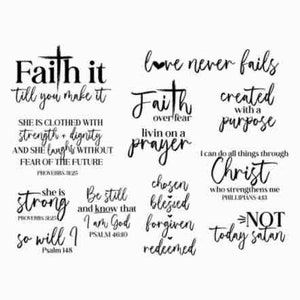 Faith it
till you make it
SHE IS CLOTHED WITH
strength + dignity
AND SHE laughs WITHOUT
FEAR OF THE FUTURE
PROVERBS 31:25
she is
strong
PROVERBS 31:25
so will I
Psalm 148
Be still
and know that
I am God
PSALM 46:10
love never fails
Faith
over fear
livin on a
prayer
chosen
blessed
forgiven
redeemed
created
with a
purpose
I can do all things through
Christ
who strengthens me
PHILLIPIANS 4:13
NOT
today satan